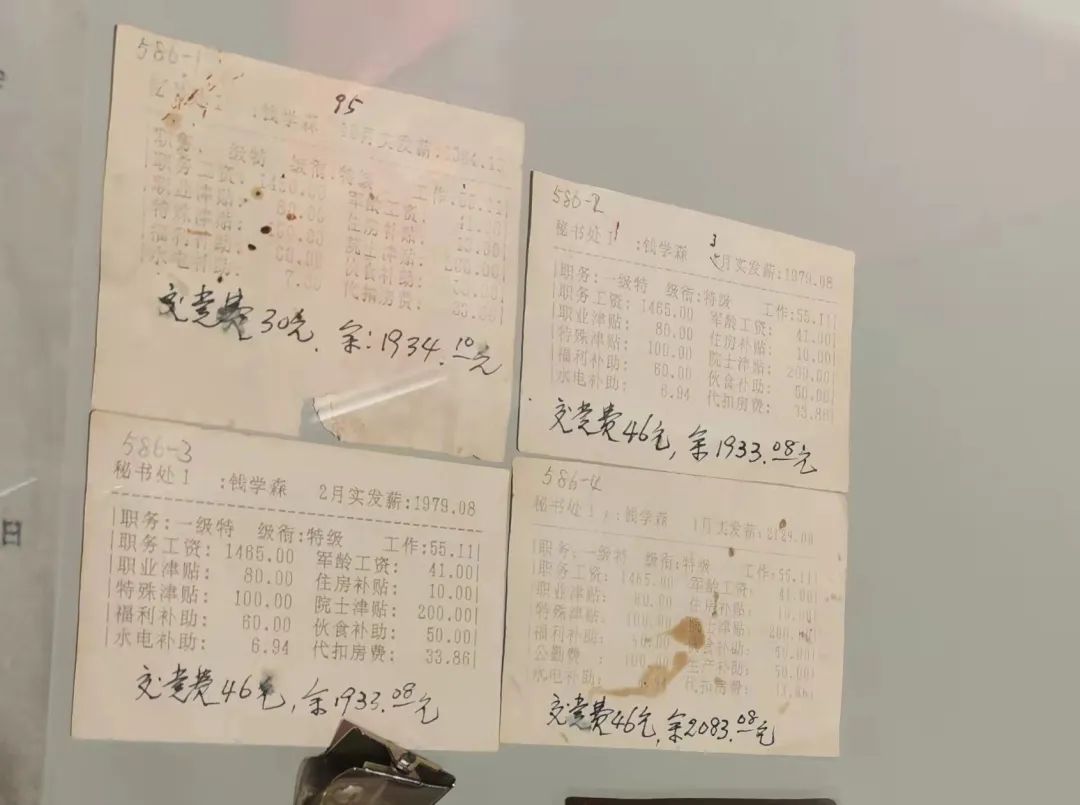 586-1
95
:钱学森 月实发薪:
级特 级衔:特级 工作:55.11
职务工资: 军龄工资: 41.00
职业津贴: 80.00 住房补贴:
特殊津贴: 院士津贴: 200.00
福利补助: 伙食补助:
水电补助: 代扣房费:
交党费30元、余:1934.10元
586-2
秘书处1 :钱学森 3月实发薪:1979.08
职务:一级特 级衔:特级 工作:55.11
职务工资: 1465.00 军龄工资: 41.00
职业津贴: 80.00 住房补贴: 10.00
特殊津贴: 100.00 院士津贴: 200.00
福利补助: 60.00 伙食补助: 50.00
水电补助: 6.94 代扣房费: 33.86
交党费46元,余1933.08元
586-3
秘书处1 :钱学森 2月实发薪:1979.08
职务:一级特 级衔:特级 工作:55.11
职务工资: 1465.00 军龄工资: 41.00
职业津贴: 80.00 住房补贴: 10.00
特殊津贴: 100.00 院士津贴: 200.00
福利补助: 60.00 伙食补助: 50.00
水电补助: 6.94 代扣房费: 33.86
交党费46元,余1933.08元
586-4
秘书处1 :钱学森 1月实发薪:2129.08
职务:一级特 级衔:特级 工作:55.11
职务工资: 1465.00 军龄工资: 41.00
职业津贴: 80.00 住房补贴: 10.00
特殊津贴: 100.00 院士津贴: 200.00
福利补助: 伙食补助:
公勤费: 100.00 生产补助: 50.00
水电补助: 代扣房费:
交党费46元,余2083.08元
日